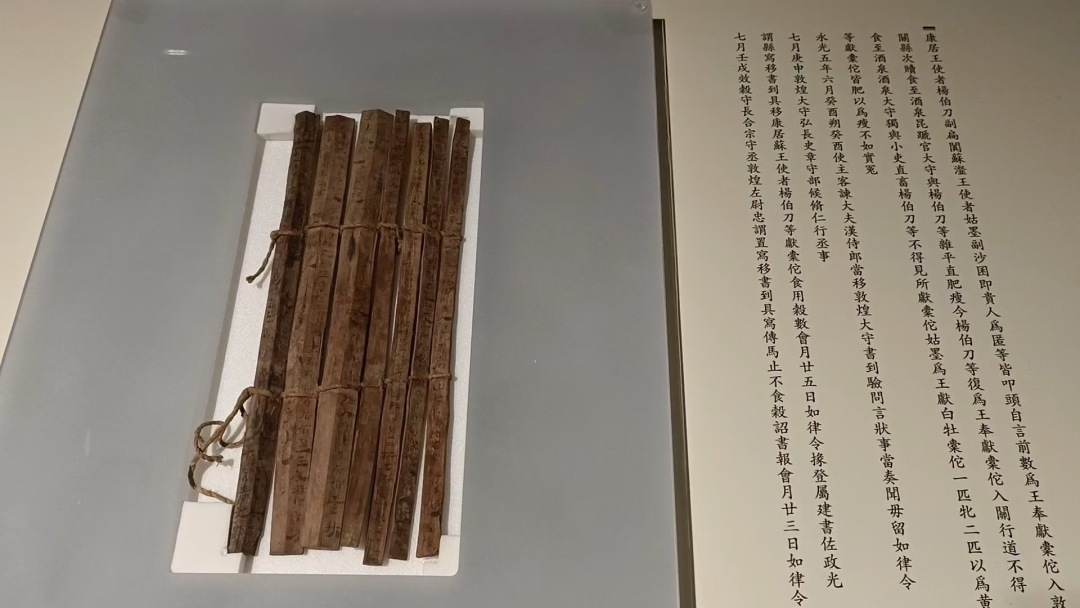 康居王使者楊伯刀副扁闐蘇瀣王使者姑墨副沙囷即貴人爲匿等皆叩頭自言前數爲王奉獻橐佗入敦
關縣次贖食至酒泉昆蹏官大守與楊伯刀等雜平直肥瘦今楊伯刀等復爲王奉獻橐佗入關行道不得
食至酒泉酒泉大守獨與小吏直畜楊伯刀等不得見所獻橐佗姑墨爲王獻白牡橐佗一匹牝二匹以爲黃
等獻橐佗皆肥以爲瘦不如實冤
永光五年六月癸酉朔癸酉使主客諫大夫漢侍郎當移敦煌大守書到驗問言狀事當奏聞毋留如律令
七月庚申敦煌大守弘長史章守部候脩仁行丞事
謂縣寫移書到具移康居蘇王使者楊伯刀等獻橐佗食用穀數會月廿五日如律令掾登屬建書佐政光
七月壬戌效穀守長合宗守丞敦煌左尉忠謂置寫移書到具寫傳馬止不食穀詔書報會月廿三日如律令